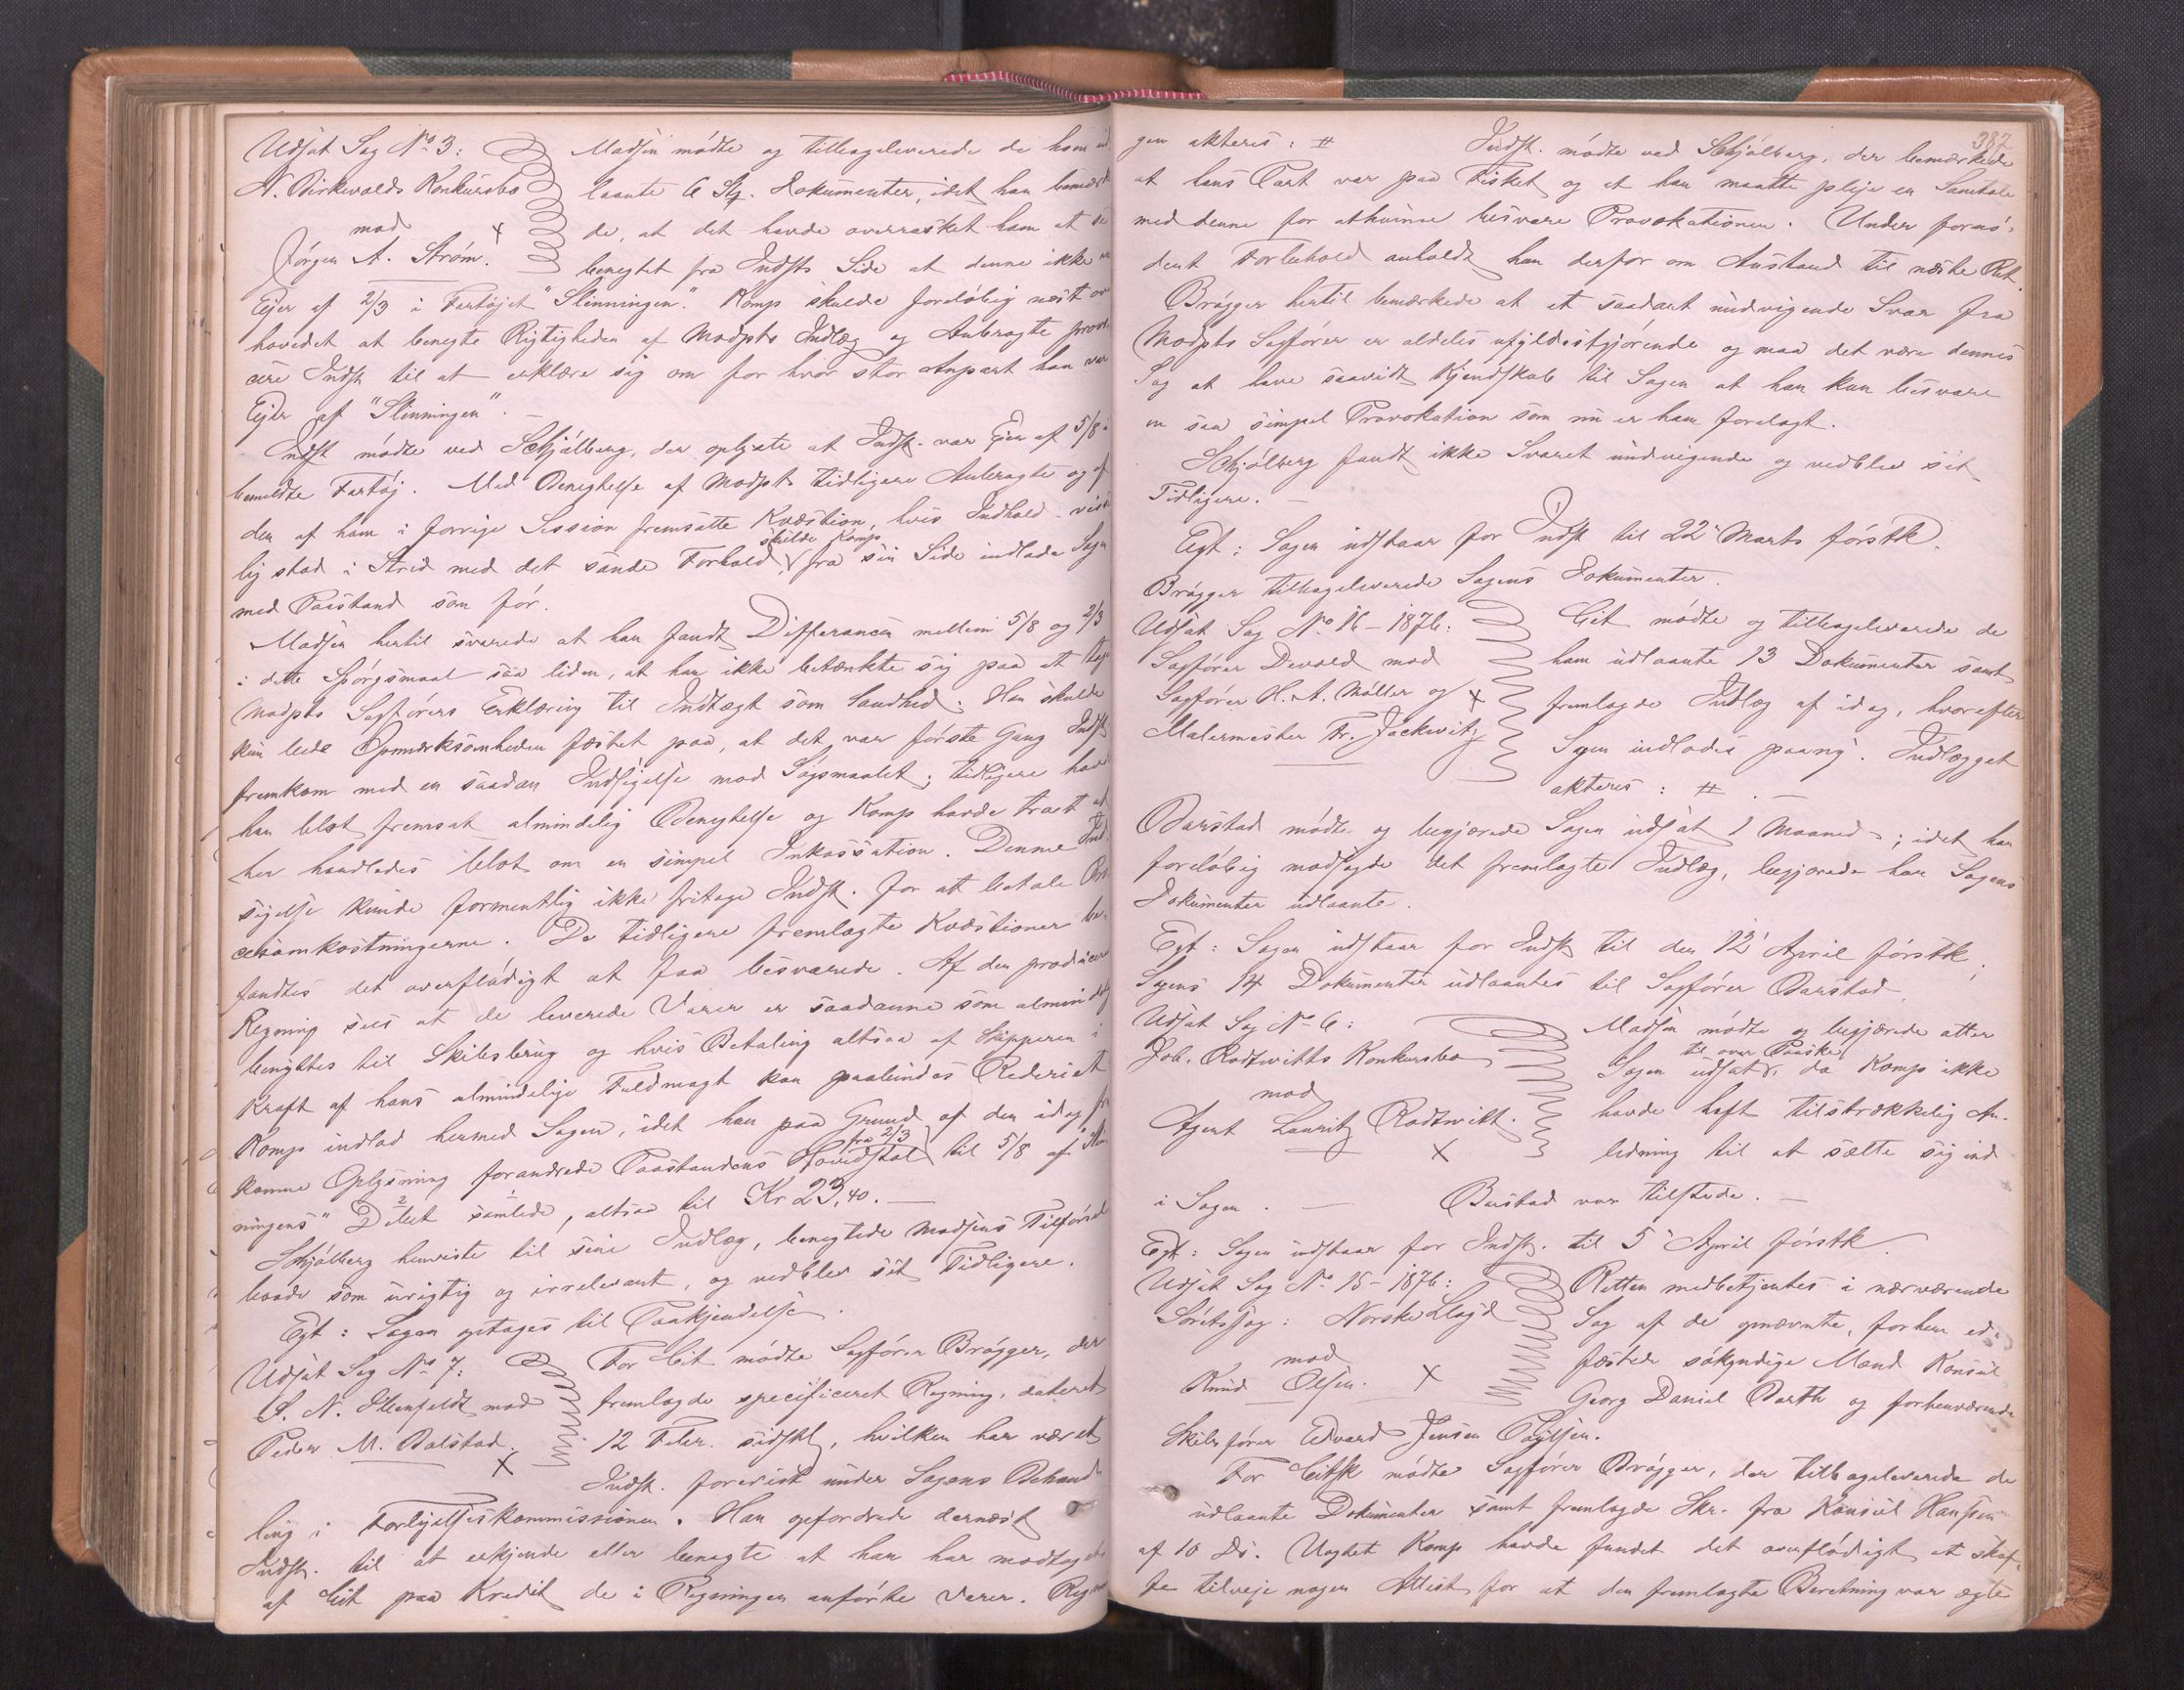 Udsat Sag No 3:
N. Birkevolds Konkursbo
mod
Jörgen A. Ström.
Madsen mödte og tilbageleverede de ham ud
laante 6 St. Dokumenter, idet han bemærk
de, at det havde overrasket ham at se
benegtet fra Indsts Side at denne ikke er
Ejer af 2/3 i Fartöjet "Slinningen". Komp skulde forelöbig næst over
hovedet at benegte Rigtigheden af Modpts Indlæg og Anbragte provo
cere Indst til at erklære sig om for hvor stor Anpart han var
Ejer af "Slinningen". —
Indst mödte ved Schjölberg, der oplyste at Indst. var Ejer af 5/8 i
bemeldte Fartöj. Med Benegtelse af Modpts tidligere Anbragte og af
den af ham i forrige Session fremsatte Kvæstion, hvis Indhold
skulde Komp
lig stod i Strid med det sande Forhold, fra sin Side indlade Sagen
med Paastand som för.
Madsen hertil svarede at han fandt Differancen mellem 5/8 og 2/3
i dette Spörgsmaal saa liden, at han ikke betænkte sig paa at tage
Modpts Sagförers Erklæring til Indtægt som Sandhed. Han skulde
kun bede Opmærksomheden fæstet paa, at det var förste Gang Indst
fremkom med en saadan Indsigelse mod Sögsmaalet; tidligere havde
han blot fremsat almindelig Benegtelse og Komp havde troet at
her handledes blot om en simpel Inkassation. Denne Ind
sigelse kunde formentlig ikke fritage Indst. for at betale Pro
cesomkostningerne. De tidligere fremlagte Kvæstioner be-
fandtes det overflödigt at faa besvarede. Af den producerede
Regning sees at de leverede Varer er saadanne som almindelig
benyttes til Skibsbrug og hvis Betaling altsaa af Skipperen i
Kraft af hans almindelige Fuldmagt kan paabindes Rederiet
Komp indlod hermed Sagen, idet han paa Grund af den idag frem
fra 2/3
komne Oplysning forandrede Paastandens Hovedstol til 5/8 af "Slin
ningens" Debet samlede, altsaa til Kr 23,40. —
Schjölberg henviste til sine Indlæg, benegtede Madsens Tilförsel
baade som urigtig og irrelevant, og vedblev sit Tidligere.
Egt: Sagen optages til Paakjendelse.
Udsat Sag No 7:
P. N. Ellenfeldt mod
Peder M. Balstad.
For Cit. mödte Sagförer Brögger, der
fremlagde specificeret Regning, dateret
12 Febr. sidstl, hvilken har været
Indst. forevist under Sagens Behand-
ling i Forligelseskommissionen. Han opfordrede dernæst
Indst. til at erkjende eller benegte at han har modtaget
af Cit paa Kredit de i Regningen anförte Varer. Regnin
387.
gen akteres: #
Indst. mödte ved Schjölberg, der bemærkede
at hans Part var paa Fisket og at han maatte pleje en Samtale
med denne for at kunne besvare Provokationen. Under fornö-
dent Forbehold anholdt han derfor om Anstand til næste Ret.
Brögger hertil bemærkede at et saadant undvigende Svar fra
Modpts Sagförer er aldeles ufyldestgjörende og maa det være dennes
Sag at have saavidt Kjendskab til Sagen at han kan besvare
en saa simpel Provokation som nu er ham forelagt.
Schjölberg fandt ikke Svaret undvigende og vedblev sit
Tidligere. —
Egt: Sagen udstaar for Indst til 22 Marts förstk.
Brögger tilbageleverede Sagens Dokumenter.
Udsat Sag No 16 - 1876:
Sagförer Devold mod
Sagförer H. A. Möller og
Malermester Fr. Jackwitz
Cit mödte og tilbageleverede de
ham udlaante 13 Dokumenter samt
fremlagde Indlæg af idag, hvorefter
Sagen indlodes paany. Indlægget
akteres: #. —
Barstad mödte og begjærede Sagen udsat 1 Maaned; idet han
forelöbig modsagde det fremlagte Indlæg, begjærede han Sagens
Dokumenter udlaante.
Egt: Sagen udstaar for Indst til den 12 April förstk;
Sagens 14 Dokumenter udlaantes til Sagförer Barstad.
Udsat Sag No 6:
Joh. Rodtwitts Konkursbo
mod
Agent Lauritz Rodtwitt.
Madsen mödte og begjærede atter
til over Paaske
Sagen udsat, da Komp ikke
havde haft tilstrækkelig An-
ledning til at sætte sig ind
i Sagen. — Barstad var tilstede. —
Egt: Sagen udstaar for Indst. til 5 April förstk.
Udsat Sag No 15 - 1876:
Söretssag: Norske Lloyd
mod
Knud Olsen.
Retten medbetjentes i nærværende
Sag af de opnævnte, forhen ed-
fæstede sökyndige Mænd Konsul
Georg Daniel Barth og forhenværende
Skibsförer Edvard Jensen Poulsen.
For Citsk mödte Sagförer Brögger, der tilbageleverede de
udlaante Dokumenter samt fremlagde Skr. fra Konsul Hansen
af 10 ds. Uagtet Komp havde fundet det overflödigt at skaf-
fe tilveje nogen Attest for at den fremlagte Beretning var ægte